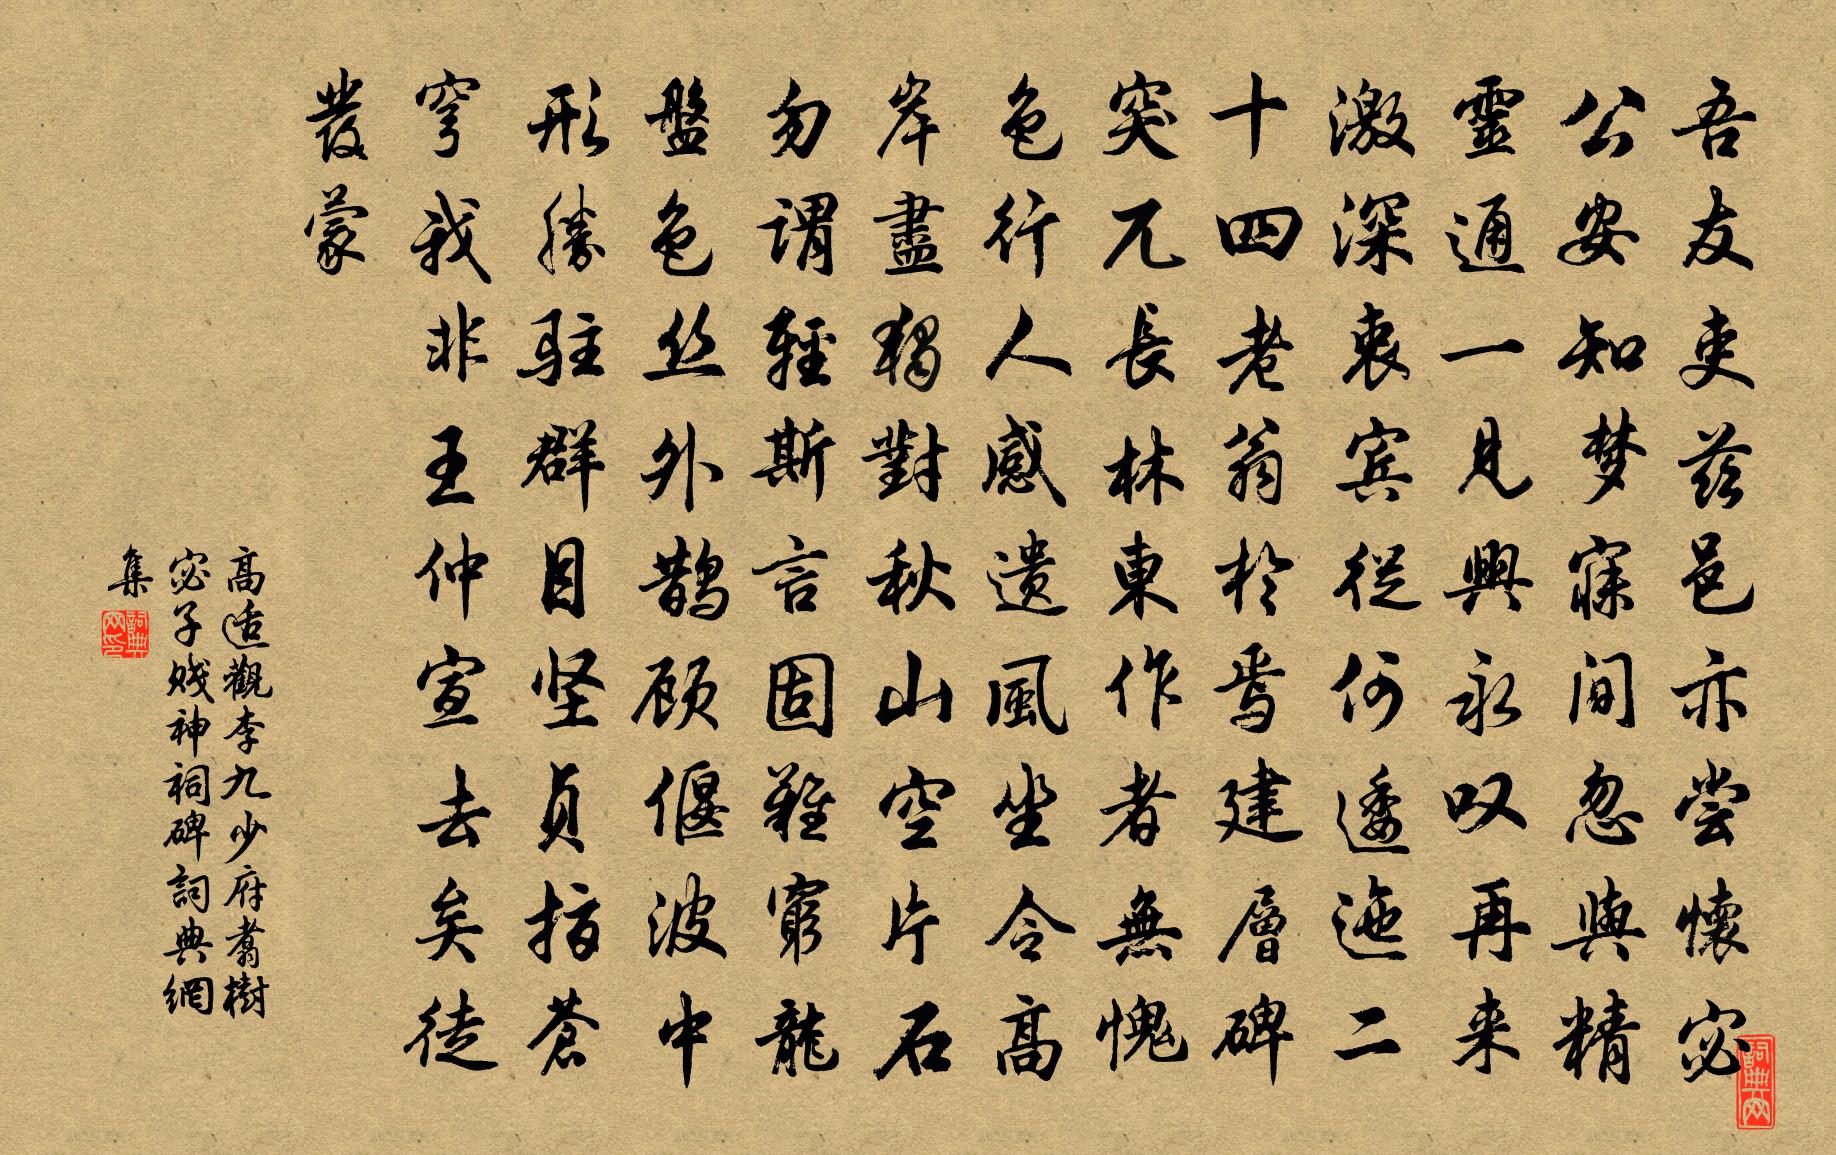 吾友吏茲邑亦尝懷宓
公安知梦寐间忽與精
靈通一見興永叹再来
激深衷宾從何逶迤二
十四老翁於焉建層碑
突兀長林東作者無愧
色行人感遗風坐令高
岸盡獨對秋山空片石
勿謂輕斯言固難窮龍
盤色丝外鹊顾偃波中
形勝驻群目坚貞指蒼
穹我非王仲宣去矣徒
發蒙
高适觀李九少府翥樹
宓子贱神祠碑詞典網
集
詞典网印
詞典网